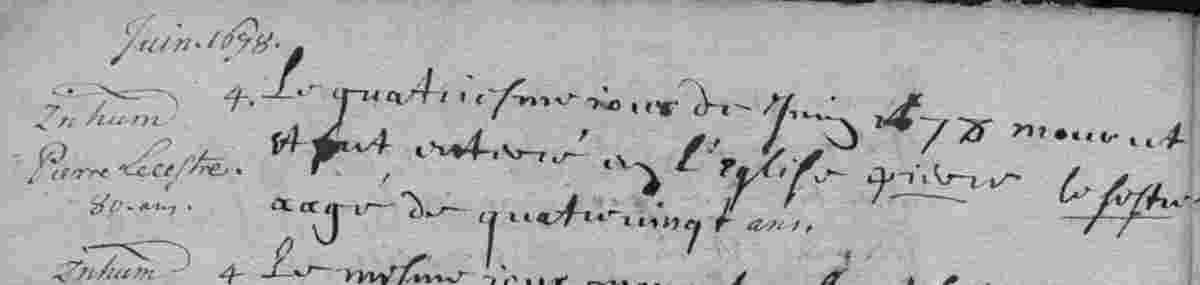 Juin. 1678.
Inhum
Pierre Lecestre.
80. ans.
4. Le quatriesme iour de Juin 1678 mourut
et fut enterré en l'eglise pierre le sestre
aagé de quatrevingt ans.
Inhum
4 Le mesme iour